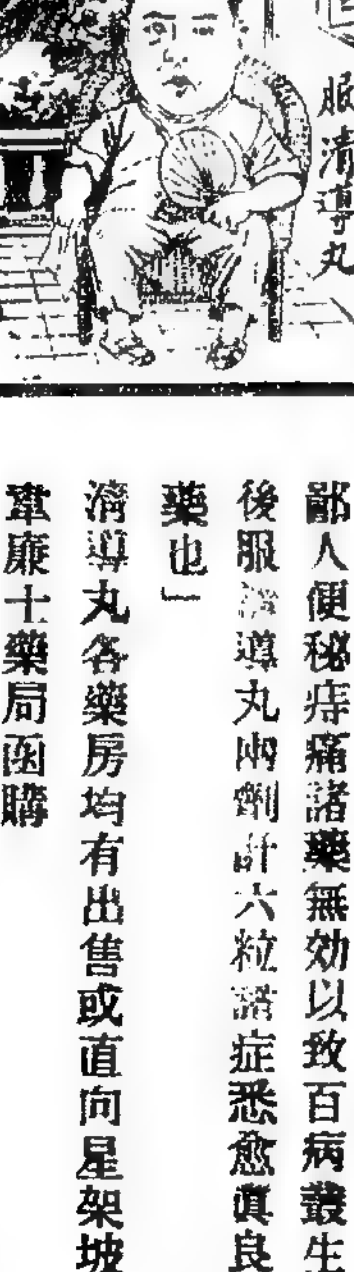 服清導丸
鄙人便秘痔痛諸藥無効以致百病叢生
後服清導丸兩劑計六粒諸症悉愈眞良
藥也」
清導丸各藥房均有出售或直向星架坡
韋廉士藥局函購